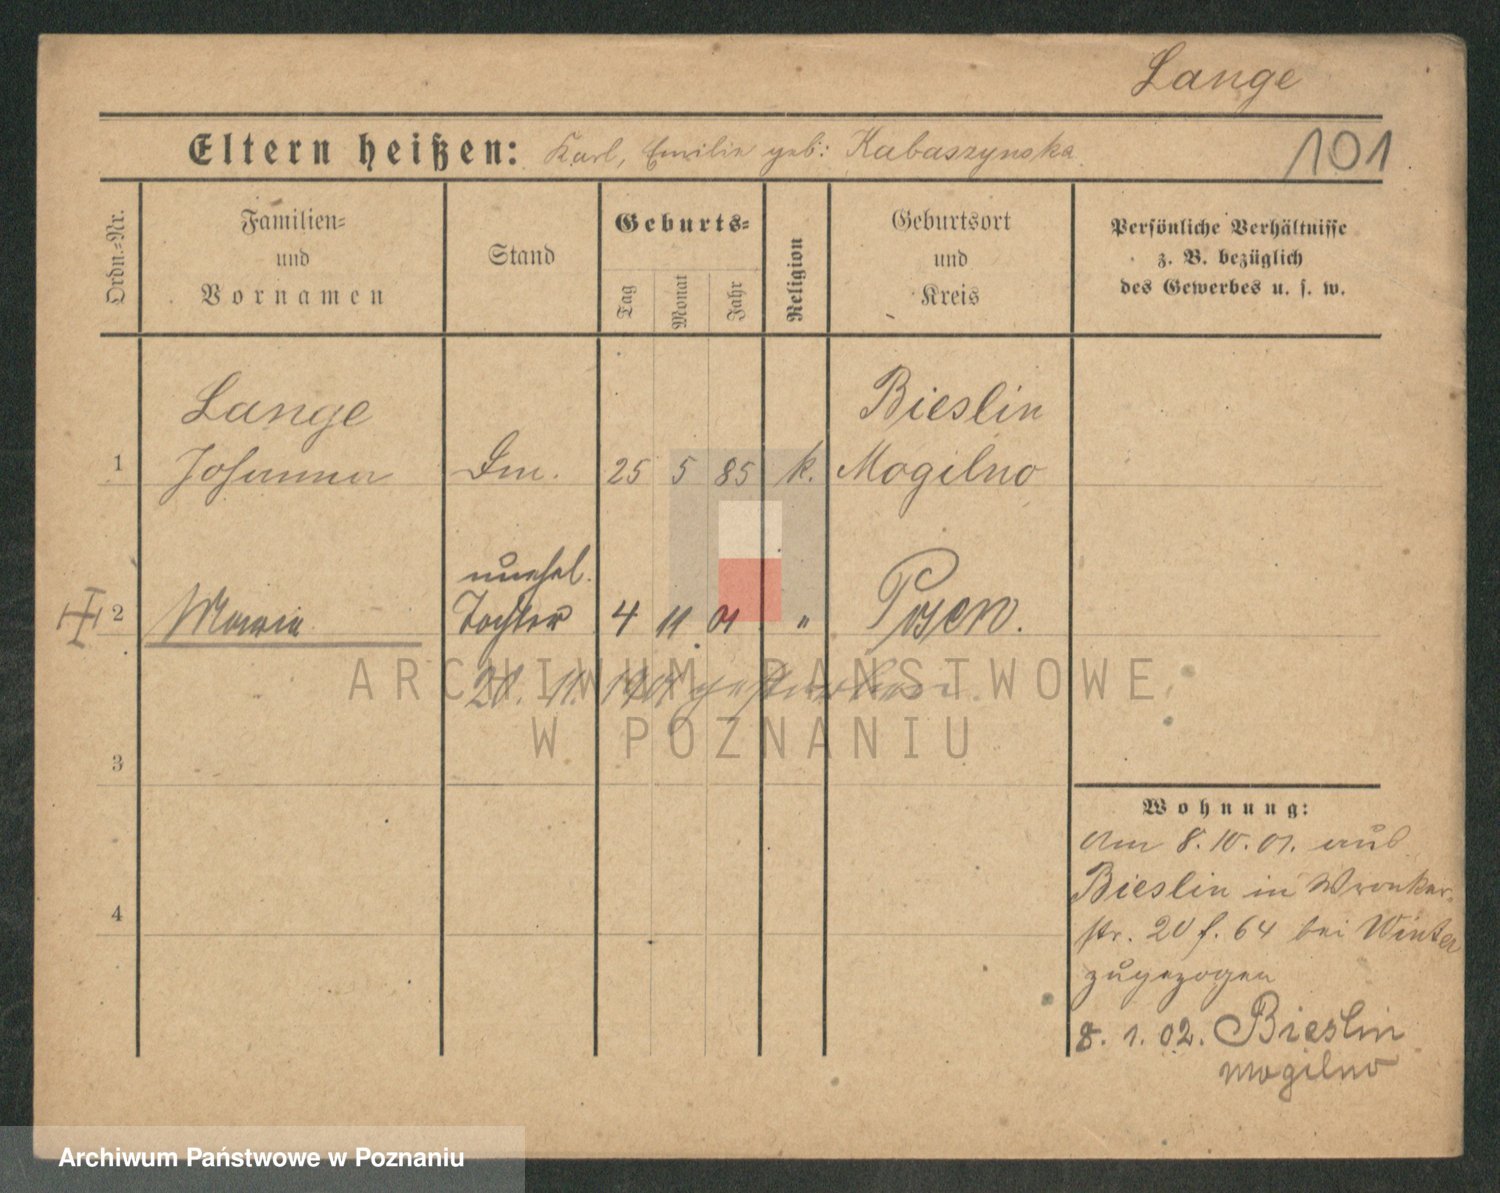 Lange
Eltern heißen: Karl, Emilie geb: Kabaszynska
101
Ordn.-Nr.
Familien-
und
Vornamen
Stand
Geburts-
Tag
Monat
Jahr
Religion
Geburtsort
und
Kreis
Persönliche Verhältnisse
z. B. bezüglich
des Gewerbes u. s. w.
Lange
Bieslin
1 Johanna 25 5 85 k. Mogilno
unehel.
2 Maria Tochter 4 11 01 " Posen.
20. 11. 1901 gestorben.
ARCHIWUM PAŃSTWOWE
W POZNANIU
3
4
Wohnung:
Am 8.10.01. aus
Bieslin in Wronker-
str. 20 f. 64 bei Winter
zugezogen
8. 1. 02. Bieslin
Mogilno
Archiwum Państwowe w Poznaniu